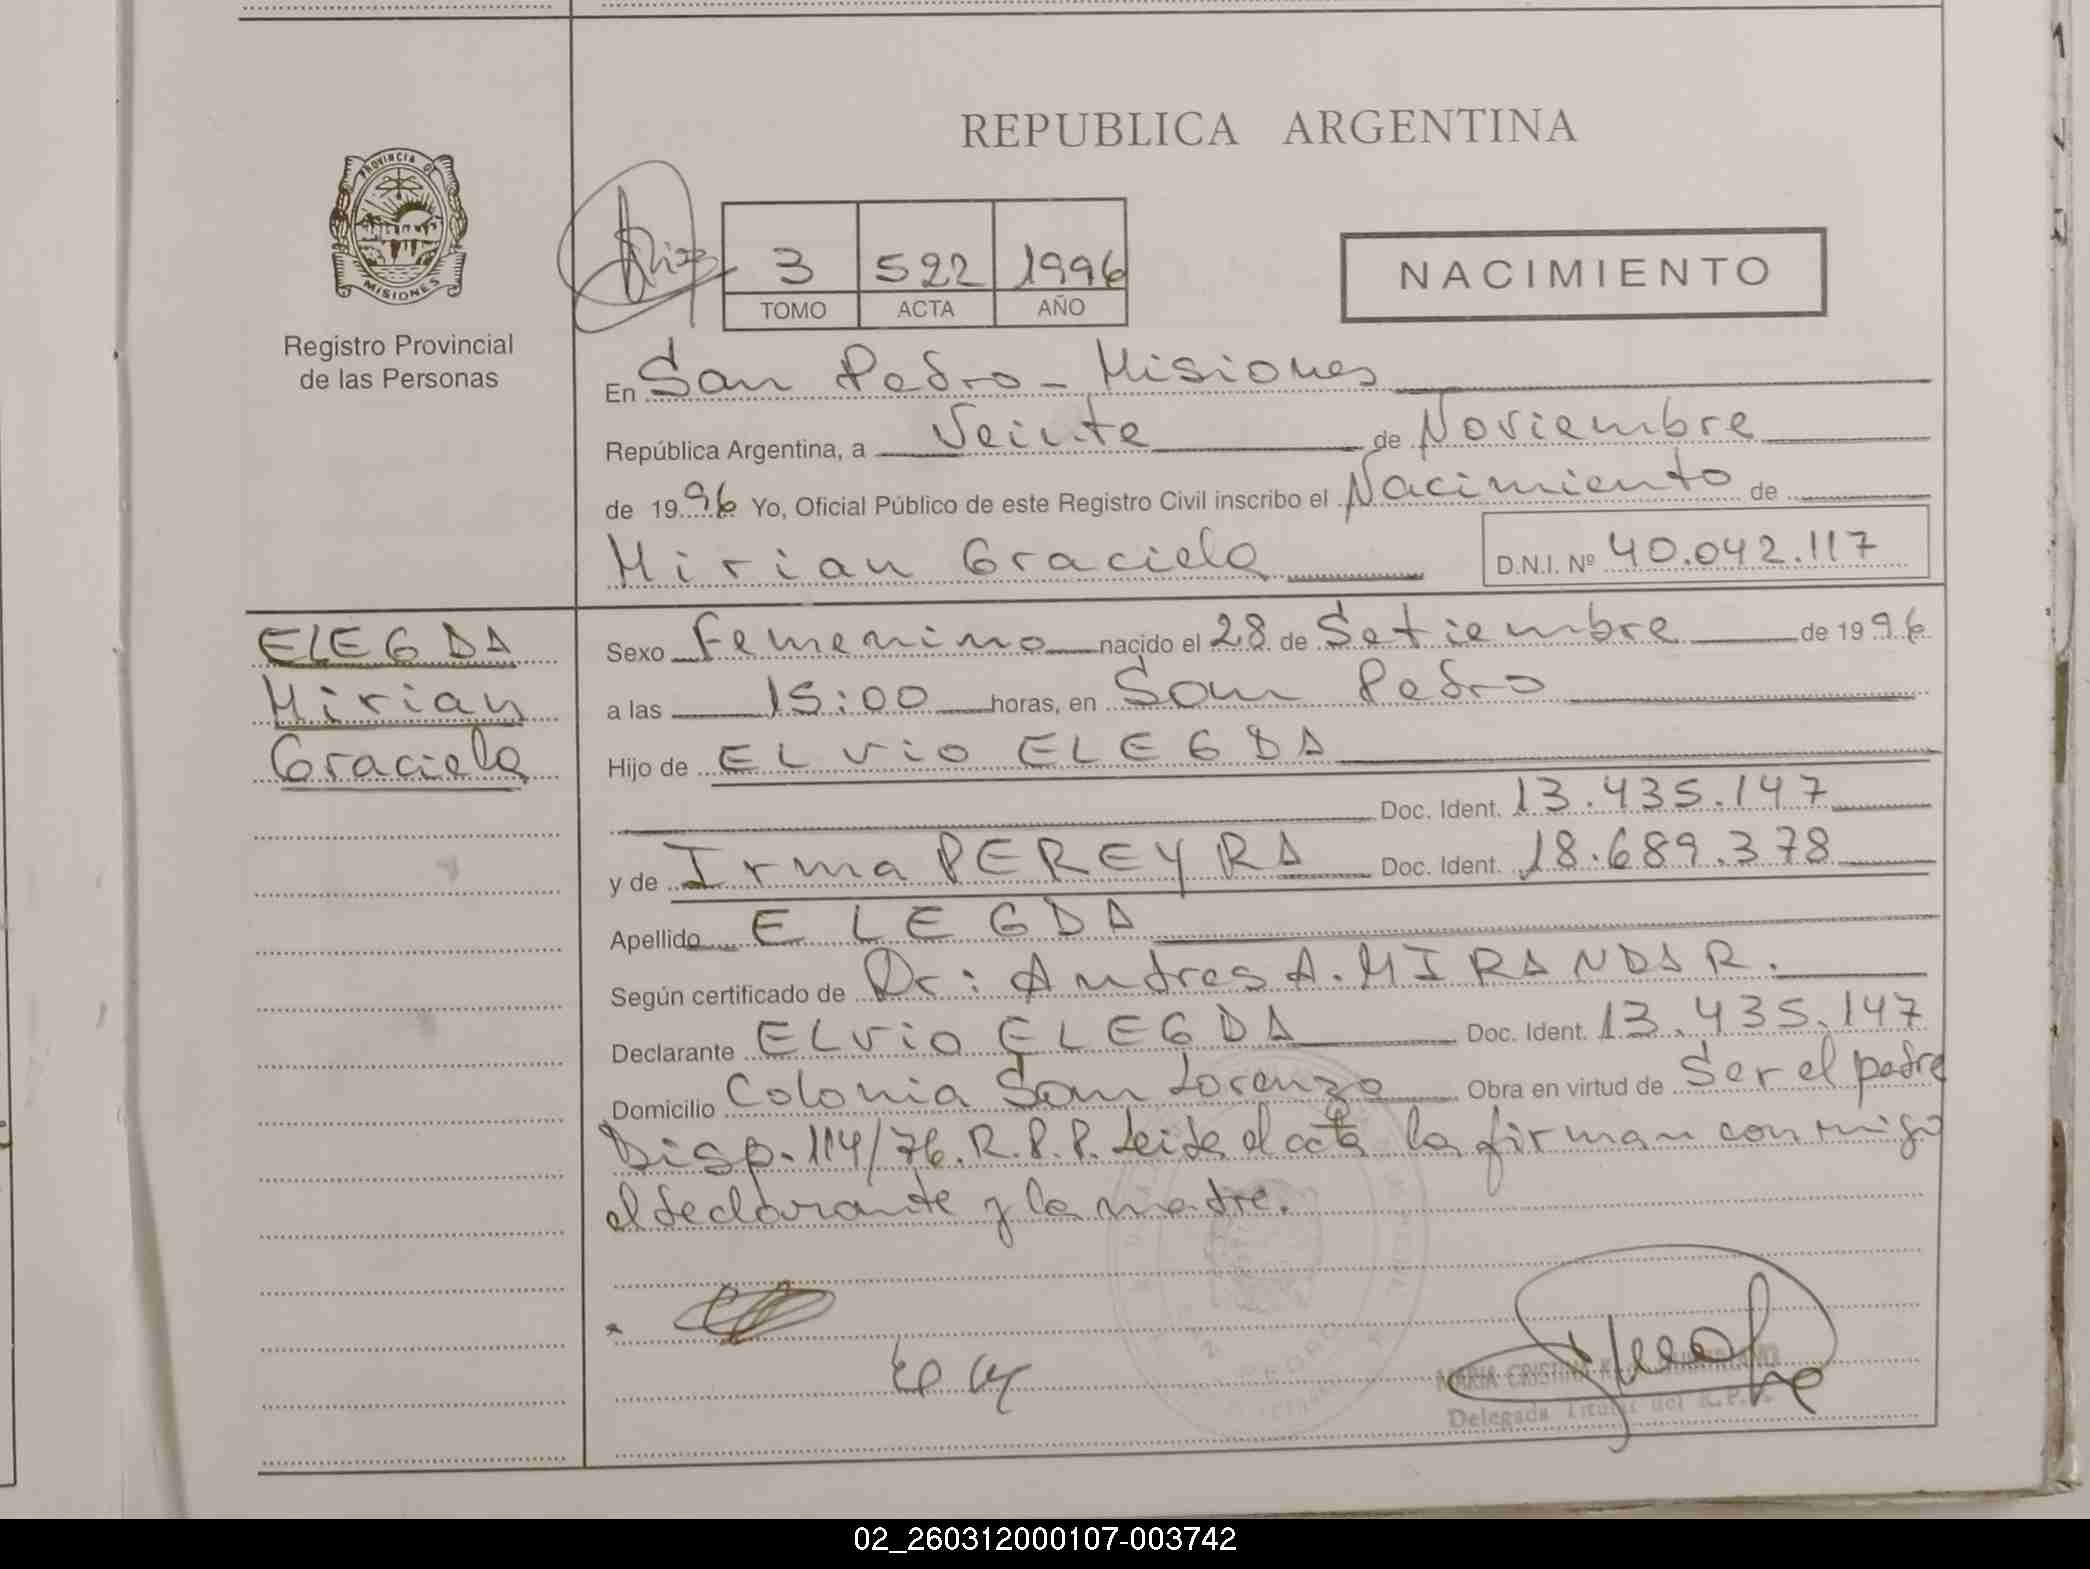 REPUBLICA ARGENTINA
PROVINCIA DE
MISIONES
Registro Provincial
de las Personas
3 522 1996
TOMO ACTA AÑO
NACIMIENTO
En San Pedro - Misiones
República Argentina, a Veinte de Noviembre
de 1996 Yo, Oficial Público de este Registro Civil inscribo el Nacimiento de
Mirian Graciela D.N.I. Nº 40.042.117
ELEGDA
Mirian
Graciela
Sexo Femenino nacido el 28 de Setiembre de 1996
a las 15:00 horas, en San Pedro
Hijo de ELvio ELEGDA
Doc. Ident. 13.435.147
y de Irma PEREYRA Doc. Ident. 18.689.378
Apellido ELEGDA
Según certificado de Dr: Andres A. MIRANDA R.
Declarante ELvio ELEGDA Doc. Ident. 13.435.147
Domicilio Colonia San Lorenzo Obra en virtud de Ser el padre
Disp. 114/76. R.P.P. Leida el acta la firman conmigo
el declarante y la madre.
MARIA CRISTINA
Delegada Titular del R.P.P.
02_260312000107-003742